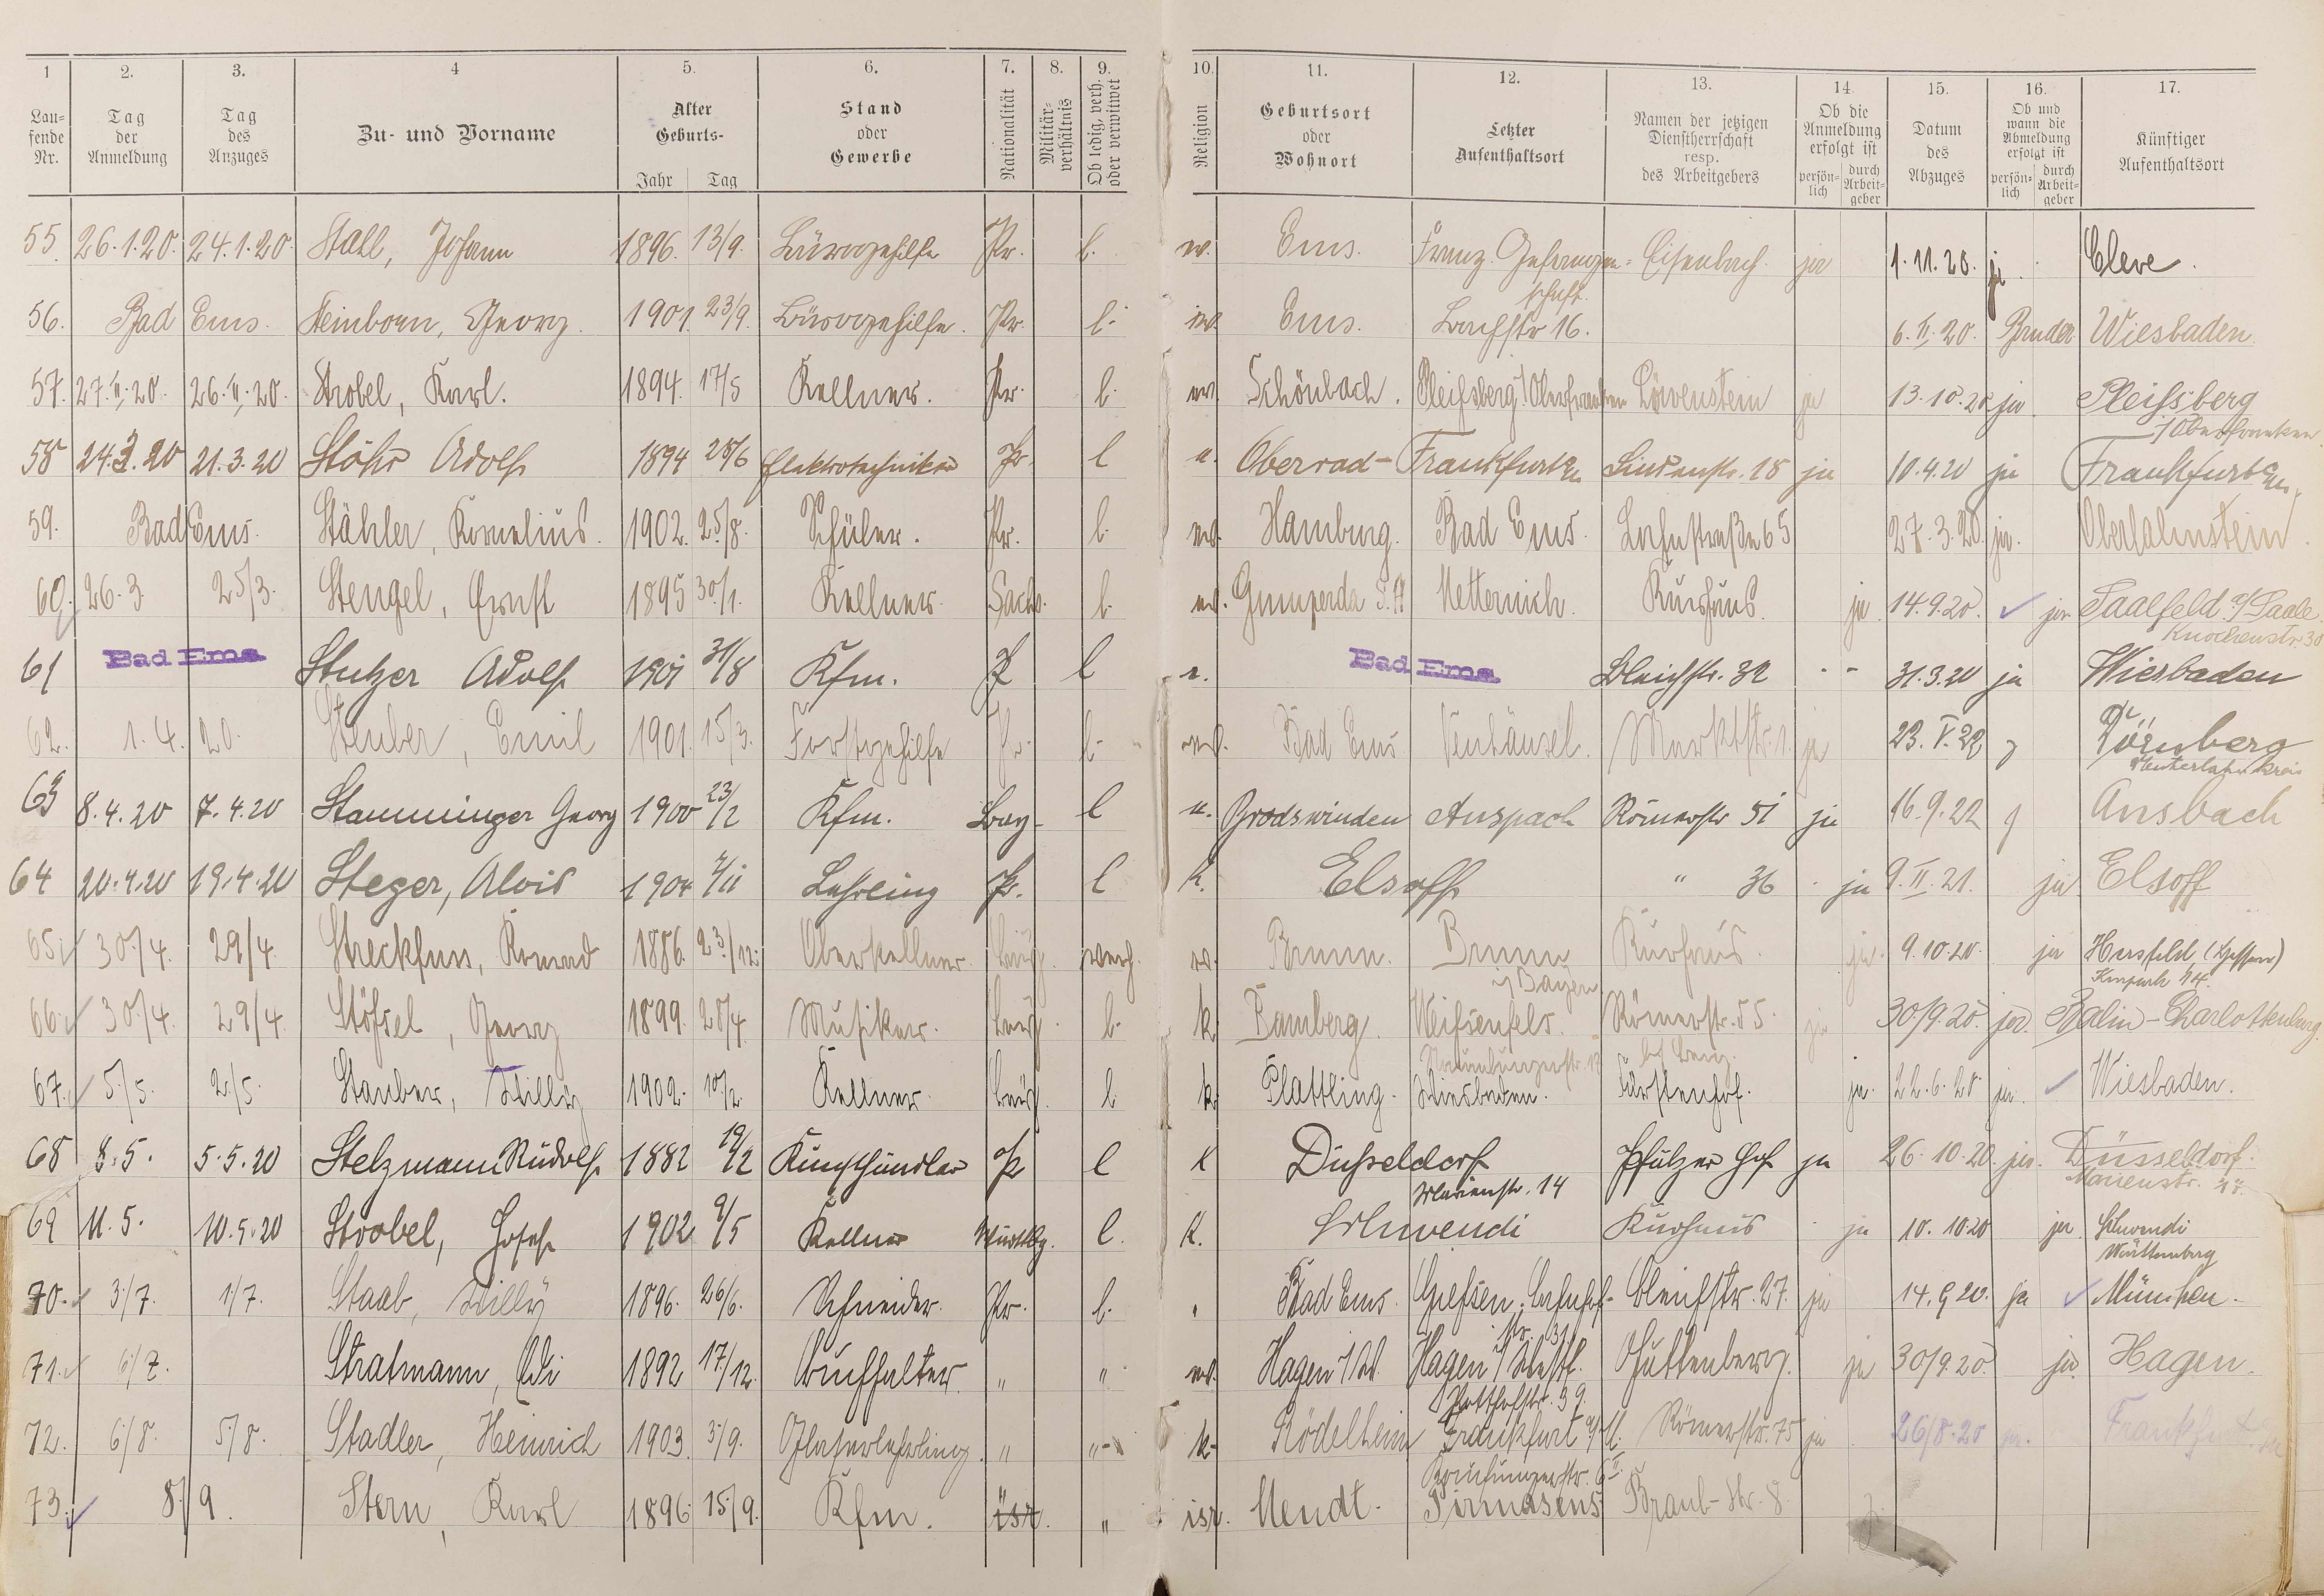 1 2. 3. 4 5. 6. 7. 8. 9. 10. 11. 12. 13. 14. 15. 16. 17.
Lau=
fende
Nr.
Tag
der
Anmeldung
Tag
des
Anzuges
Zu- und Vorname
Alter
Geburts-
Jahr Tag
Stand
oder
Gewerbe
Nationalität
Militär-
verhältnis
Ob ledig, verh.
oder verwitwet
Religion
Geburtsort
oder
Wohnort
Letzter
Aufenthaltsort
Namen der jetzigen
Dienstherrschaft
resp.
des Arbeitgebers
Ob die
Anmeldung
erfolgt ist
persön-
lich
durch
Arbeit-
geber
Datum
des
Abzuges
Ob und
wann die
Abmeldung
erfolgt ist
persön-
lich
durch
Arbeit-
geber
Künftiger
Aufenthaltsort
55. 26.1.20. 24.1.20. Stall, Johann 1896. 13/9. Bürogehilfe Pr. l. ev. Ems. Franz. Gefangen- Eisenbach. ja 1.11.20. ja Cleve.
schaft.
56. Bad Ems. Steinborn, Georg. 1901. 23/9. Bürogehilfe. Pr. l. ev. Ems. Bachstr 16. 6.II.20. Bruder Wiesbaden.
57. 27.II.20. 26.II.20. Strobel, Karl. 1894. 17/5 Kellner. Pr. l. ev. Schönbach. Pleissberg/Oberfranken Löwenstein ja 13.10.20 ja Pleissberg
/Oberfranken
58 24.3.20 21.3.20 Stöhr Adolf 1894 28/6 Elektrotechniker Pr. l Oberrad- Frankfurt Lindenstr. 18 ja 10.4.20 ja Frankfurt
59. Bad Ems. Stähler, Kornelius. 1902. 25/8. Schüler. Pr. l. ev. Hamburg. Bad Ems. Lahnstraße 65 27.3.20. ja. Oberlahnstein.
60. 26.3. 25/3. Stengel, Ernst 1895 30/1. Kellner. Sachs. l. ev. Gumperda S.A Metternich. Kurhaus. ja. 14.9.20. ja Saalfeld a/Saale
Knochenstr. 30
61 Bad Ems Stutzer Adolf 1901 31/8 Kfm. P l Bad Ems Bleichstr. 32 - - 31.3.20 ja Wiesbaden
62. 1.4.20. Steuber, Emil 1901. 15/3. Forstgehilfe Pr. l. Bad Ems Neuhäusel. Marktstr. 1. ja 23.V.22 Dörnberg
Unterlahnkreis
63 8.4.20 7.4.20 Stamminger Georg 1900 23/2 Kfm. Bay- l Brodswinden Anspach Römerstr 51 ja 16.9.22 Ansbach
64 20.4.20 19.4.20 Steger, Alois 1904 Lehrling Pr. l K. Elsoff " 36 ja 9.II.21. ja Elsoff
65. 30./4. 29/4. Streckfuss, Konrad 1886. 23./12. Oberkellner. verh. Brunn. Brunn Kurhaus. ja. 9.10.20. ja Hersfeld (Hessen)
i/Bayern Kurpark 14.
66. 30./4. 29/4. Stössel, Georg 1899. 28/4. Musiker. l. k. Bamberg. Weissenfels. Römerstr. 55. ja 30/9.20. ja. Berlin-Charlottenburg.
Naumburgerstr.
67. 5/5. 2/5. Stauber, Willy 1902. 10/2. Kellner. l k. Plattling. Wiesbaden. Fürstenhof. ja. 22.6.20 ja. Wiesbaden.
68 8.5. 5.5.20 Stelzmann Rudolf 1882 19/2 Kunsthändler Pr l K Düsseldorf Pfälzer Hof ja 26.10.20. ja. Düsseldorf.
Marienstr. 14 Marienstr.
69 11.5. 10.5.20 Strobel, Josef 1902 9/5 Kellner Württbg. l. K. Schwendi Kurhaus ja 10.10.20 ja Schwendi
Württemberg
70. 3/7. 1/7. Staab, Willy 1896. 26/6. Schneider. Pr. l. " Bad Ems. Giessen, Bahnhof- Bleichstr. 27. ja 14.9.20. ja München.
str. 31.
71. 6/7. Stratmann, Edi 1892 17/12. Buchhalter. " " ev. Hagen i/W. Hagen i/Westf. Guttenberg. ja 30/9.20. ja. Hagen.
72. 6/8. 5/8. Stadler, Heinrich 1903. 3/9. Glaserlehrling. " " k. Rödelheim Frankfurt a/M. Römerstr. 75 ja 26/8.20 Frankfurt
73. 8/9. Stern, Karl 1896. 15/9. Kfm. isr. " isr. Meudt. Pirmasens Braub-Str. 8